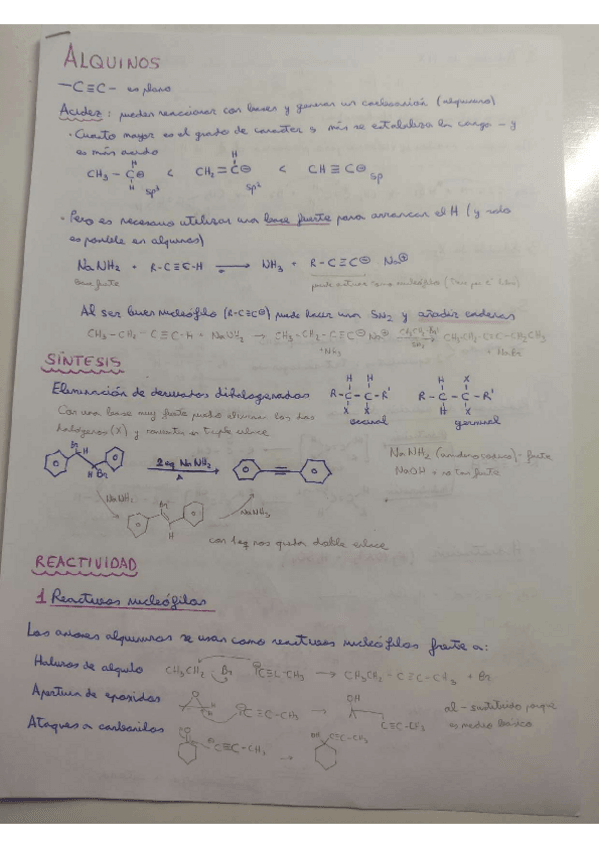 ALQUINOS
—C≡C— es plano
Acidez: pueden reaccionar con bases y generar un carbanión (alquinuro)
· Cuanto mayor es el grado de caracter s más se estabiliza la carga - y
es más ácido
H H
CH3 - C⊖ < CH2 = C⊖ < CH ≡ C⊖ sp
H sp3 sp2
· Pero es necesario utilizar una base fuerte para arrancar el H (y solo
es posible en alquinos)
NaNH2 + R-C≡C-H → NH3 + R-C≡C⊖ Na⊕
base fuerte puede actuar como nucleófilo
Al ser buen nucleófilo (R-C≡C⊖) puede hacer una SN2 y añadir cadenas
CH3-CH2-C≡C-H + NaNH2 → CH3-CH2-C≡C⊖ Na⊕ CH3CH2Br SN2 CH3CH2-C≡C-CH2CH3
+NH3 + NaBr
SÍNTESIS
Eliminación de derivados dihalogenados
H H
R-C-C-R'
X X
vecinal
H X
R-C-C-R'
H X
geminal
Con una base muy fuerte puedo eliminar los dos
halógenos (X) y convertir en triple enlace
Br H H Br
2 eq NaNH2
Δ
NaNH2 - fuerte
NaOH → no tan fuerte
NaNH2 Br H NaNH2
con 1 eq nos queda doble enlace
REACTIVIDAD
1 Reactivos nucleófilos
Los aniones alquinuros se usan como reactivos nucleófilos frente a:
Haluros de alquilo CH3CH2 - Br ⊖C≡C-CH3 → CH3CH2-C≡C-CH3 + Br
Apertura de epóxidos ⊖C≡C-CH3 → OH C≡C-CH3 al - sustituido porque
es medio básico
Ataques a carbonilos O ⊖C≡C-CH3 → OH C≡C-CH3